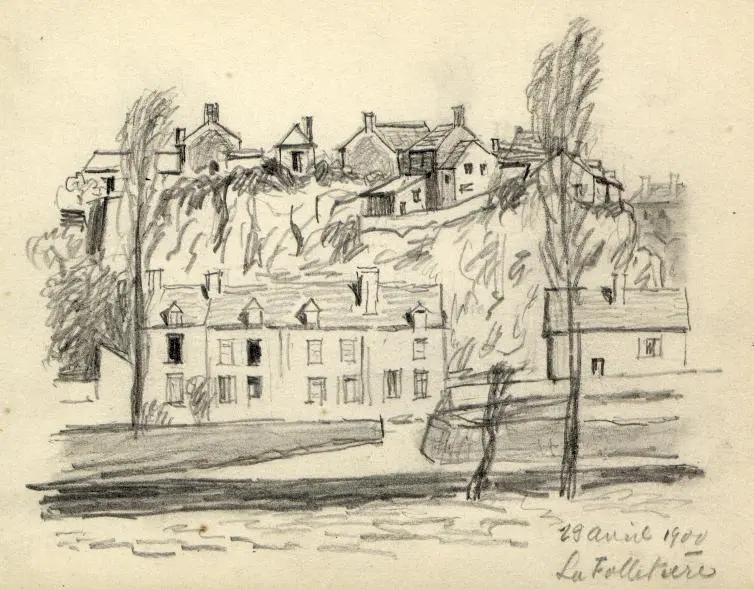 29 avril 1900
La Folletière